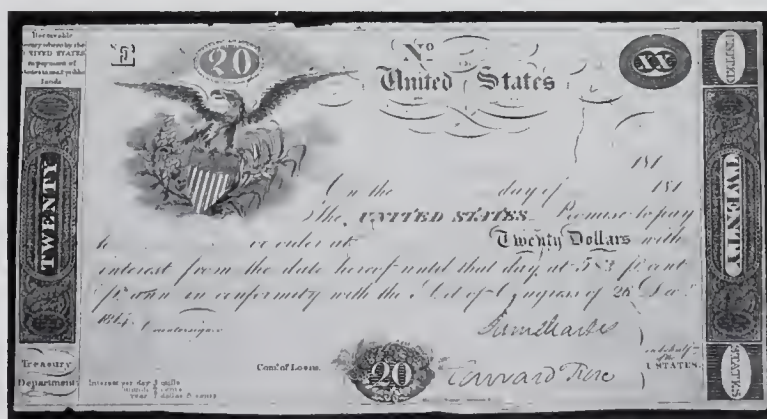 Receivable
every where by the
UNITED STATES
in payment of
duties taxes & public
funds
20
No
United States
XX
UNITED
TWENTY
TWENTY
181
On the day of 181
The UNITED STATES Promise to pay
to or order at Twenty Dollars with
interest from the date hereof until that day, at
in conformity with the Act of Congress of 26 Dec.
1814.
Countersigned
Com.r of Loans.
20
on behalf
of the
U STATES.
STATES
Treasury
Department
Interest per day mills
month cents
year dollar cents